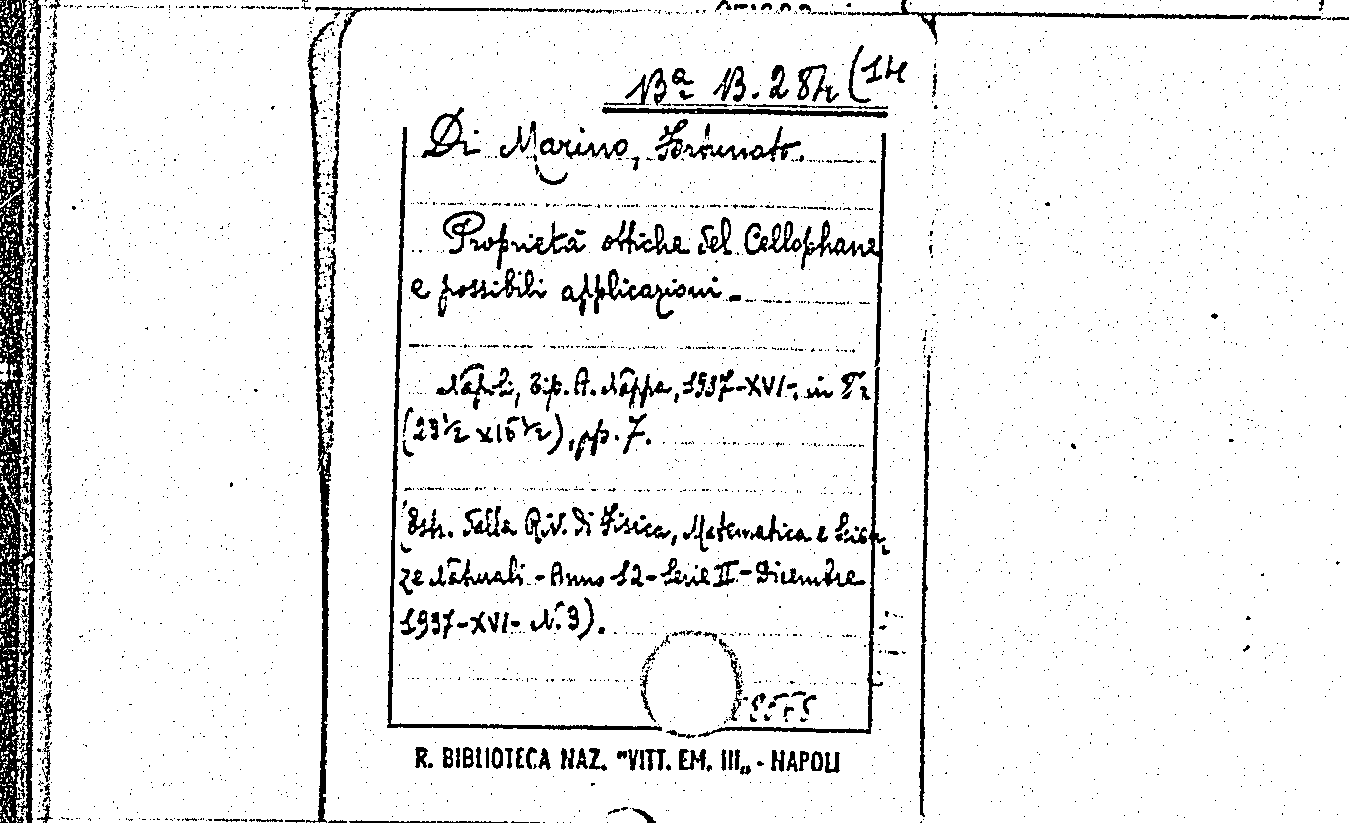 Bª B. 284 (14
Di Marino, Fortunato.
Proprietà ottiche del Cellophane
e possibili applicazioni_
Napoli, Tip. A. Nappa, 1937-XVI-, in 8º
(23½ x 16½), pp. 7.
(Estr. dalla Riv. di Fisica, Matematica e Scien-
ze Naturali - Anno 12 - Serie II - Dicembre
1937-XVI- N. 3).
R. BIBLIOTECA NAZ. "VITT. EM. III„ - NAPOLI